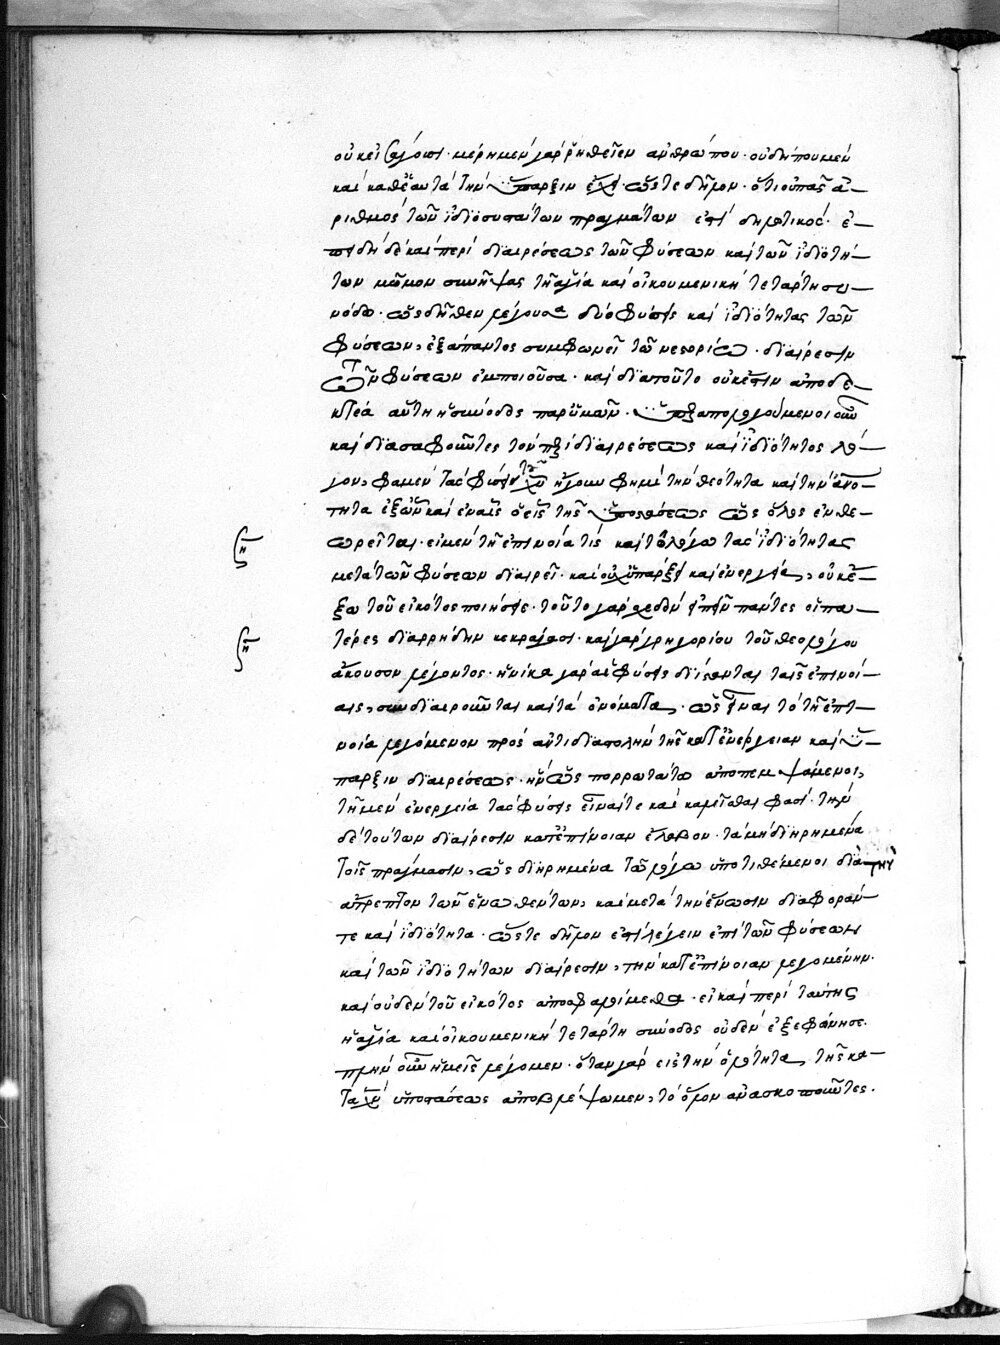 οὐκεῖ λόγοι· μέρη μὲν γὰρ ῥηθεῖεν ἀνθρώπου· οὐδήπου μὲν
καὶ καθ' ἑαυτὰ τὴν ὕπαρξιν ἔχει· ὥστε δῆλον· ὅτι οὐ πᾶς ἀ-
ριθμὸς τῶν ἰδιοσυστάτων πραγμάτων ἐστὶ δηλωτικός· ἐ-
πειδὴ δὲ καὶ περὶ διαιρέσεως τῶν φύσεων καὶ τῶν ἰδιοτή-
των μῶμον συνῆψας τῇ ἁγία καὶ οἰκουμενικῇ τετάρτη συ-
νόδω· ὡς δῆθεν λέγουσα δύο φύσεις καὶ ἰδιότητας τῶν
φύσεων, ἐξάπαντος συμφωνεῖ τῶ νεστορίω· διαίρεσιν
τῶν φύσεων ἐμποιοῦσα· καὶ διατοῦτο οὐκ ἔστιν ἀποδε-
κτέα αὕτη ἡ σύνοδος παρ' ὑμῶν· ὑπεραπολογούμενοι οὖν
καὶ διασαφοῦντες τὸν περὶ διαιρέσεως καὶ ἰδιότητος λό-
γον, φαμὲν τὰς φύσεις τοῦ χυ ἤγουν φημὶ τὴν θεότητα καὶ τὴν ἀνο-
τητα ἐξ ὧν καὶ ἐν αἷς ὁ εἷς τῆς ὑποστάσεως ὡς ὅλος ἐνθε-
ωρεῖται· εἰ μὲν τῇ ἐπινοία τίς καὶ τῶ λόγω τὰς ἰδιότητας
μετὰ τῶν φύσεων διαιρεῖ· καὶ οὐχ ὑπάρξει καὶ ἐνεργεία, οὐκ ἔ-
ξω τοῦ εἰκότος ποιήσει· τοῦτο γὰρ σχεδὸν εἰπεῖν πάντες οἱ πα-
τέρες διαρρήδην κεκράγασι· καὶ γὰρ γρηγορίου τοῦ θεολόγου
ἄκουσον λέγοντος· ἡνίκα γὰρ αἱ φύσεις διίστανται ταῖς ἐπινοί-
αις, συνδιαιροῦνται καὶ τὰ ὀνόματα, ὡς εἶναι τὸ τῇ ἐπι-
νοία λεγόμενον πρὸς ἀντιδιαστολὴν τῆς κατ' ἐνέργειαν καὶ ὕ-
παρξιν διαιρέσεως· ἣν ὡς πορρωτάτω ἀποπεμψάμενοι,
τῇ μὲν ἐνεργεία τὰς φύσεις εἶναί τε καὶ καλεῖσθαι φασί· τὴν
δὲ τούτων διαίρεσιν κατ' ἐπίνοιαν ἔλαβον· τὰ μὴ διῃρημένα
τοῖς πράγμασιν, ὡς διῃρημένα τῶ λόγω ὑποτιθέμενοι διὰ τὴν
ἄτρεπτον τῶν ἑνωθέντων, καὶ μετὰ τὴν ἕνωσιν διαφοράν
τε καὶ ἰδιότητα· ὥστε δῆλον ἐπιλέγειν ἐπὶ τῶν φύσεων
καὶ τῶν ἰδιοτήτων διαίρεσιν, τὴν κατ' ἐπίνοιαν λεγομένην·
καὶ οὐδὲν τοῦ εἰκότος ἀποσφαλούμεθα· εἰ καὶ περὶ ταύτης
ἡ ἁγία καὶ οἰκουμενικὴ τετάρτη σύνοδος οὐδὲν ἐξεφώνησε·
πλὴν οὖν ἡμεῖς λέγομεν· ὅταν γὰρ εἰς τὴν ὁλότητα, τῆς κα-
τὰ χν ὑποστάσεως ἀποβλέψωμεν, τὸ ὅλον ἀνασκοποῦντες·